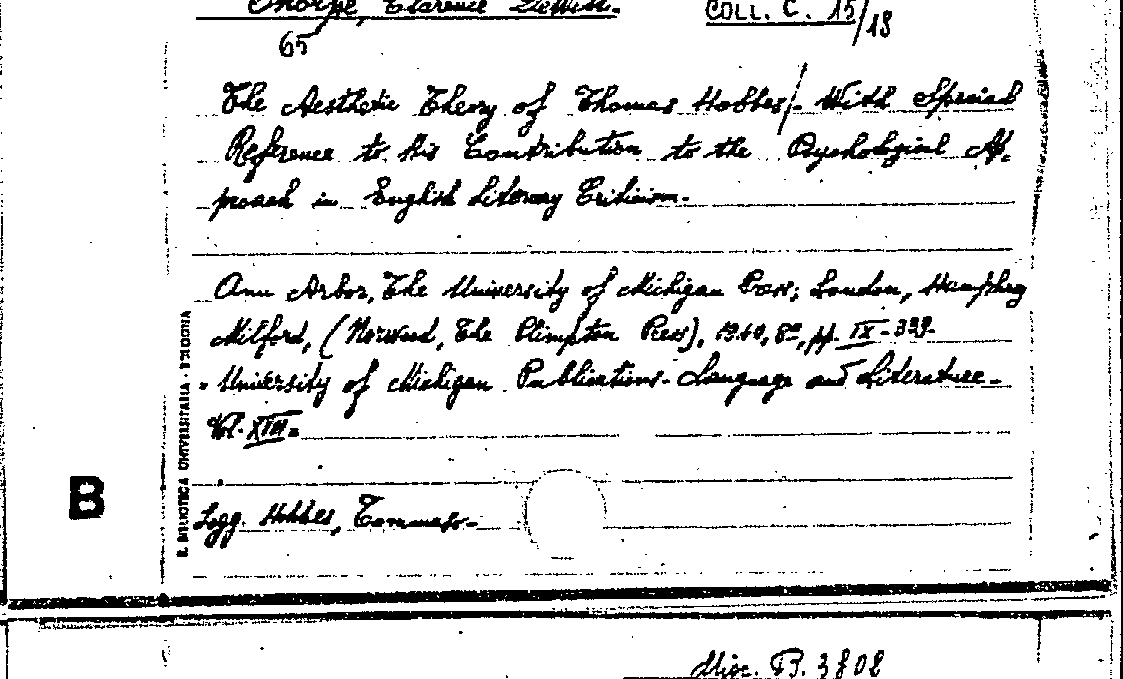 Thorpe, Clarence DeWitt.
COLL. C. 15/18
65
The Aesthetic Theory of Thomas Hobbes/- With Special
Reference to his Contribution to the Psychological Ap-
proach in English Literary Criticism.-
Ann Arbor, The University of Michigan Press; London, Humphrey
Milford, (Norwood, The Plimpton Press), 1940, 8º, pp. IX-339-
- University of Michigan Publications- Language and Literature-
Vol. XIII-
Sogg. Hobbes, Tommaso.-
R. BIBLIOTECA UNIVERSITARIA - 
B
Misc. B. 3808